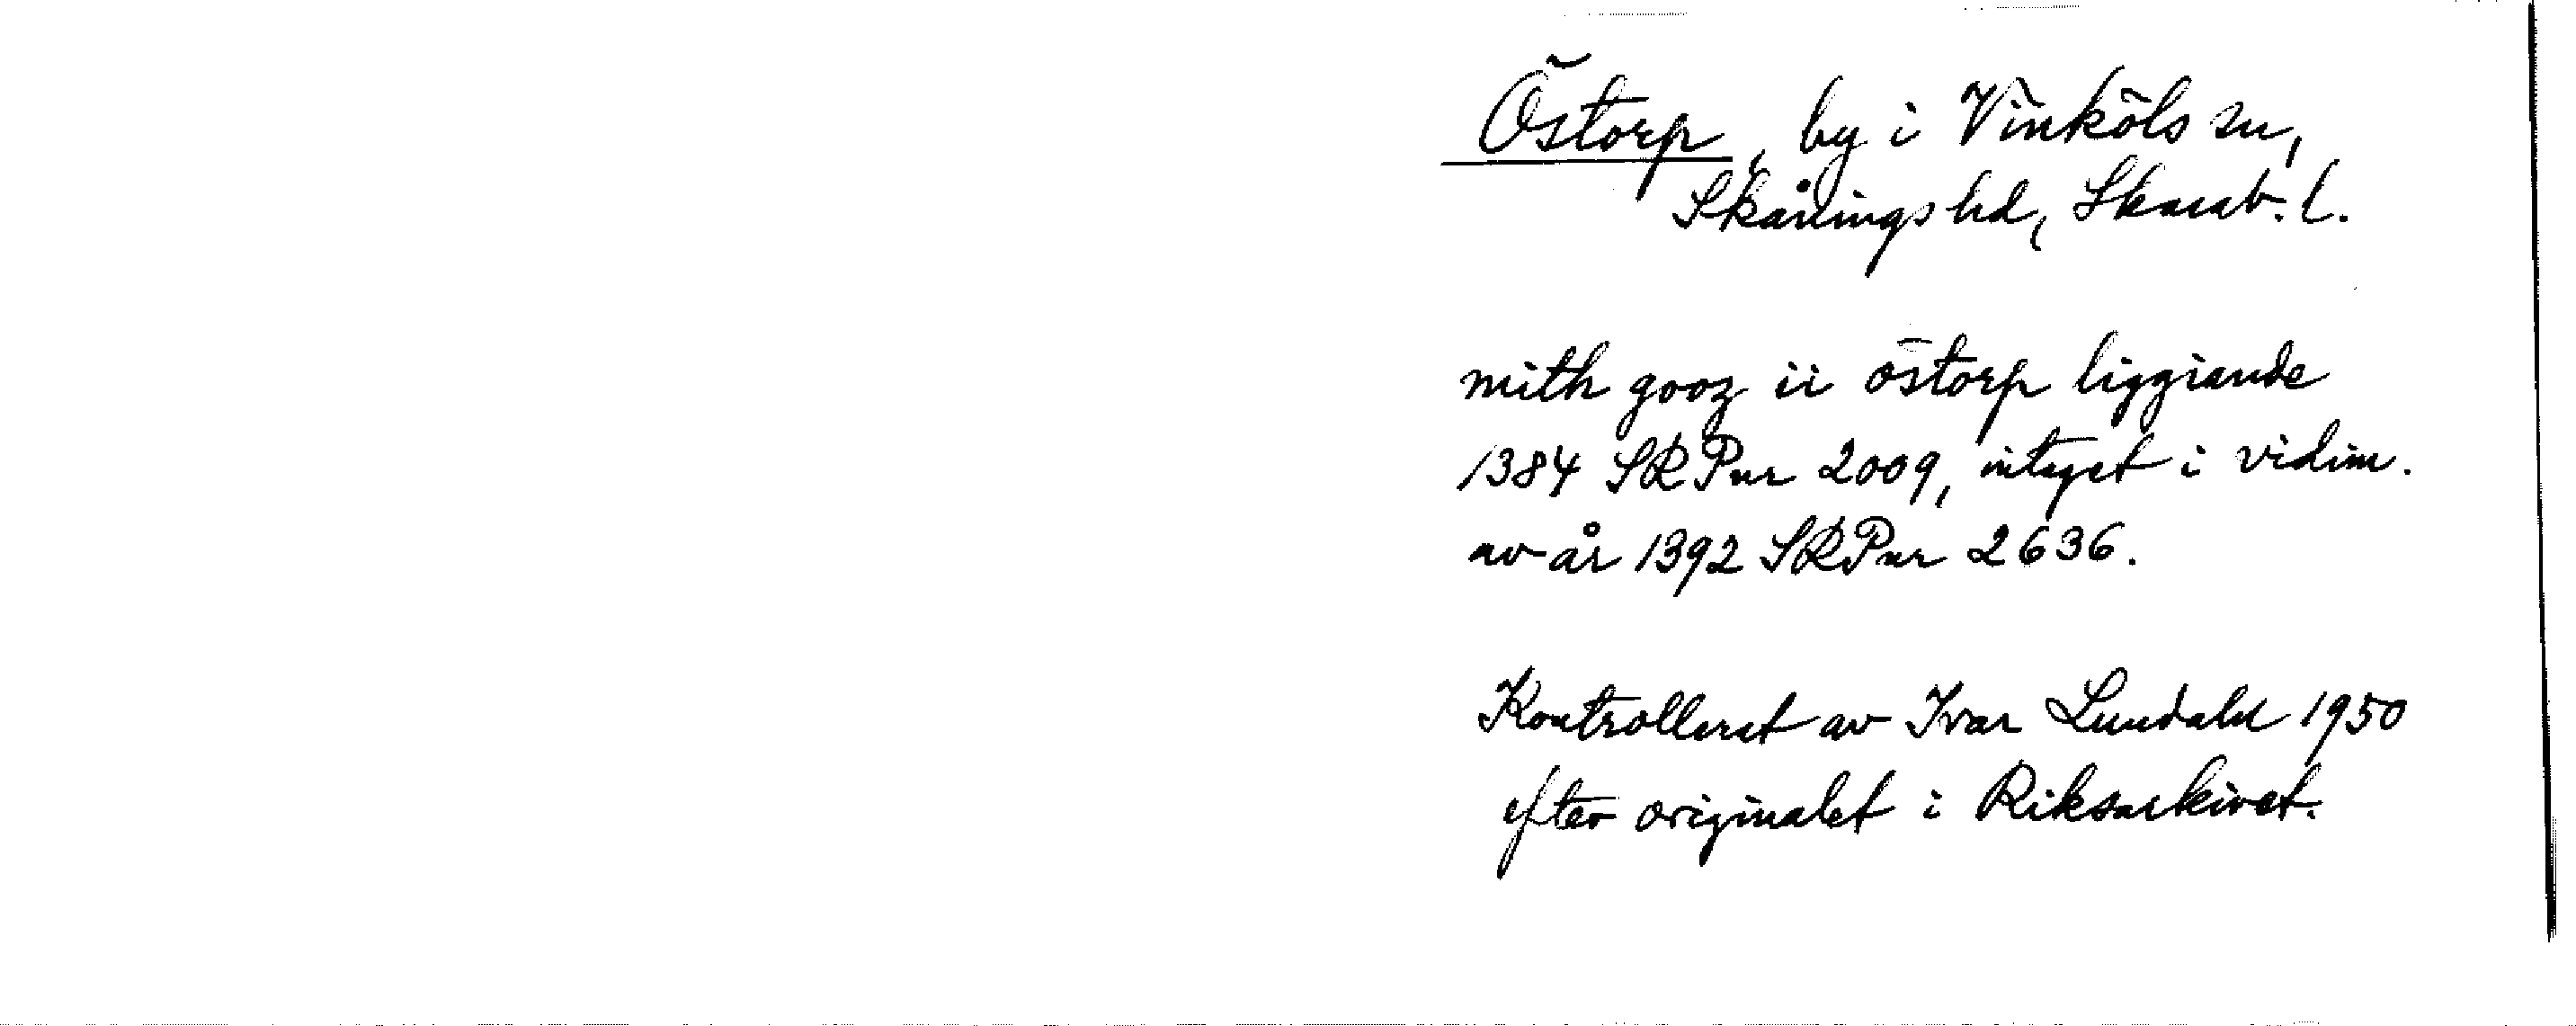 Östorp, by i Vinköls sn,
Skånings hd, Skarab. l.
mith gooz ii östorp liggiande
1384 SRPnr 2009, intaget i vidim.
av år 1392 SRPnr 2636.
Kontrollerat av Ivar Lundahl 1950
efter originalet i Riksarkivet.